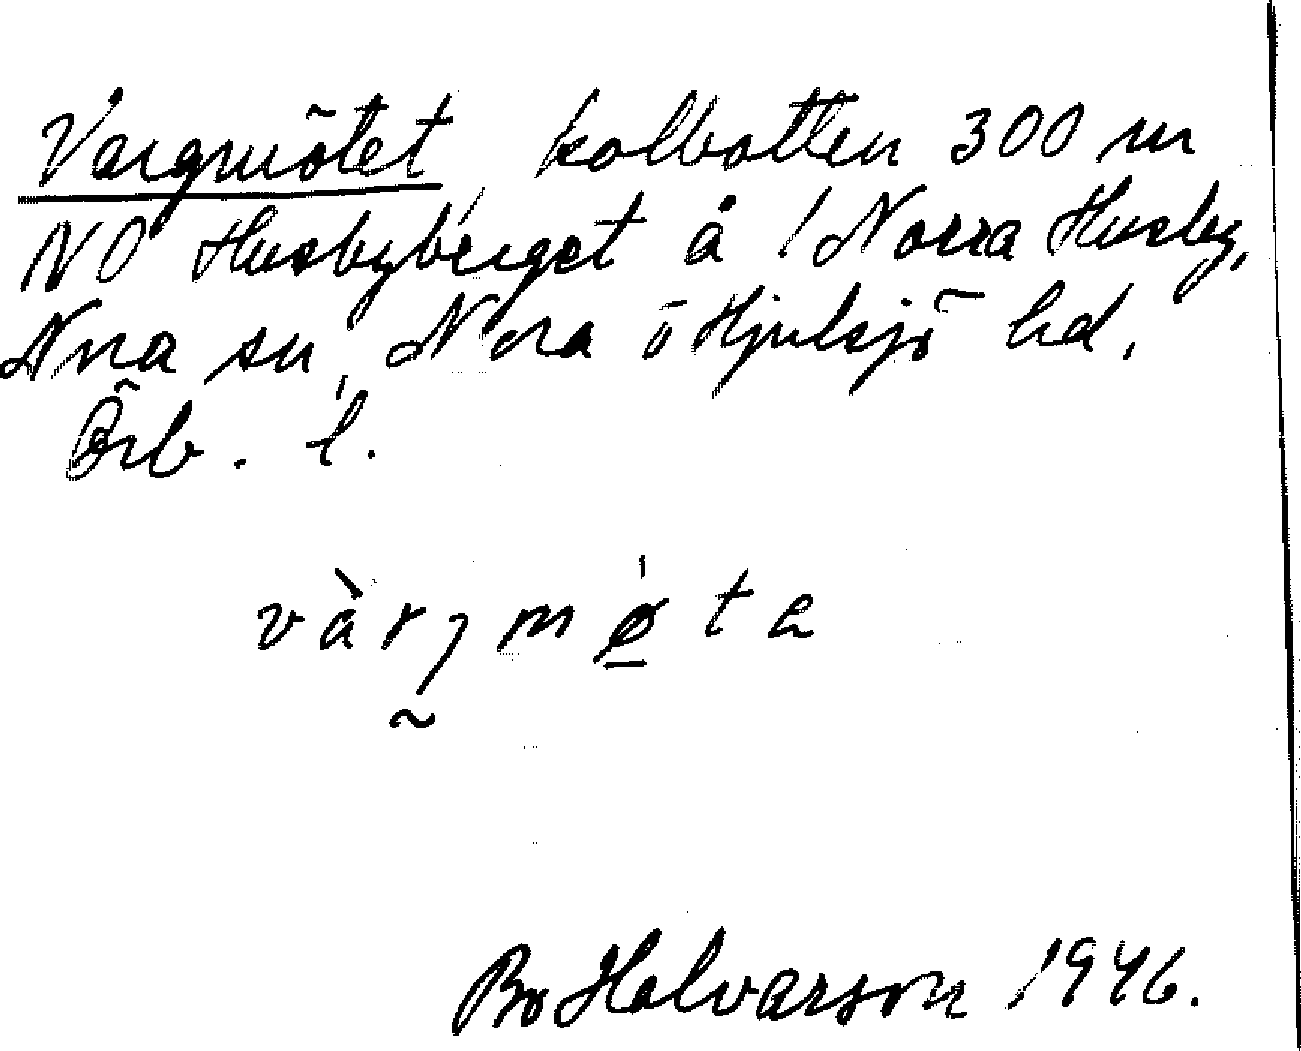 Vargmötet, kolbotten 300 m
NO Husbyberget å / Norra Husby,
Nora sn, Nora o Hjulsjö hd,
Örb. l.
vàrgmø̲ta
Bo Halvarson 1946.